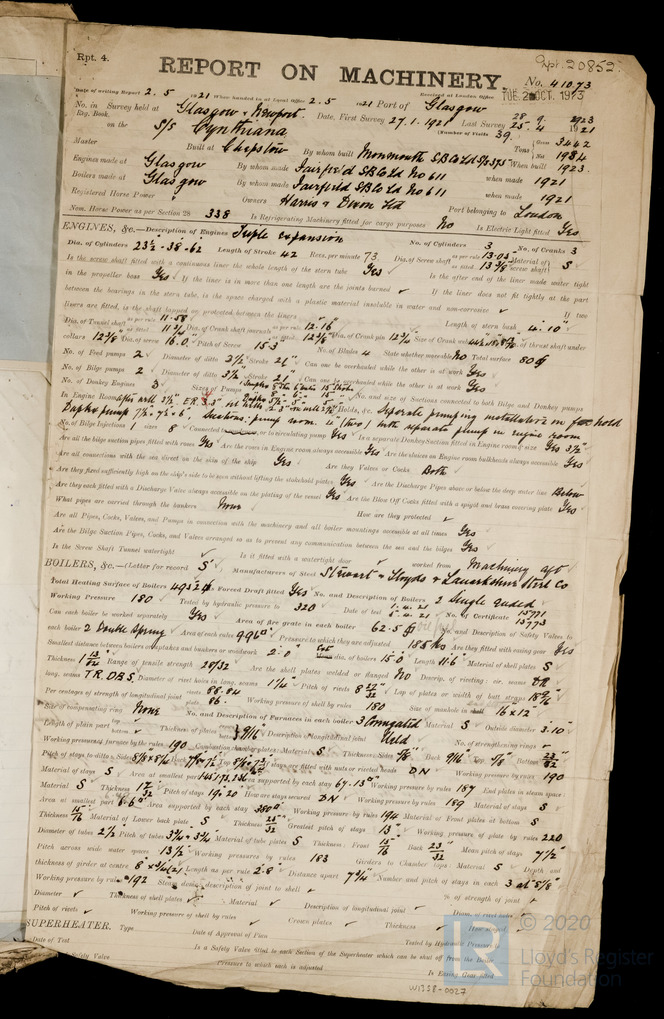 Rpt. 4.
Rpt. 20852.
REPORT ON MACHINERY.
No. 41073
Date of writing Report 2. 5 1921 When handed in at Local Office 2. 5 1921 Port of Glasgow
Received at London Office TUE. 2 OCT. 1923
No. in Survey held at Glasgow & Newport Date, First Survey 27. 1. 1921 Last Survey 25. 4. 1921
28. 9. 1923
Reg. Book. (Number of Visits 39
on the S/S Cynthiana Tons Gross 3462 Net 1984
Master Built at Chepstow By whom built Monmouth S.B. Co Ld When built 1923
Engines made at Glasgow By whom made Fairfield S.B. Co Ld No 611 when made 1921
Boilers made at Glasgow By whom made Fairfield S.B. Co Ld No 611 when made 1921
Registered Horse Power Owners Harris & Dixon Ltd Port belonging to London
Nom. Horse Power as per Section 28 338 Is Refrigerating Machinery fitted for cargo purposes No Is Electric Light fitted Yes
ENGINES, &c.—Description of Engines Triple expansion No. of Cylinders 3 No. of Cranks 3
Dia. of Cylinders 23½ - 38 - 62 Length of Stroke 42 Revs. per minute 73 Dia. of Screw shaft as per rule 13.03 as fitted 13⅜ Material of screw shaft S
Is the screw shaft fitted with a continuous liner the whole length of the stern tube Yes Is the after end of the liner made water tight
in the propeller boss Yes If the liner is in more than one length are the joints burned If the liner does not fit tightly at the part
between the bearings in the stern tube, is the space charged with a plastic material insoluble in water and non-corrosive If two
liners are fitted, is the shaft lapped or protected between the liners Length of stern bush 4'.10"
Dia. of Tunnel shaft as per rule 11.58 Dia. of Crank shaft journals as per rule 12.16 as fitted 12⅝ Dia. of Crank pin 12¾ Size of Crank webs
collars 12⅝ Dia. of screw 16.0 Pitch of Screw 15.3 No. of Blades 4 State whether moveable No Total surface 80
No. of Feed pumps 2 Diameter of ditto 3½ Stroke 21" Can one be overhauled while the other is at work Yes
No. of Bilge pumps 2 Diameter of ditto 3½ Stroke 21 Can one be overhauled while the other is at work Yes
No. of Donkey Engines 3 Sizes of Pumps No. and size of Suctions connected to both Bilge and Donkey pumps
In Engine Room In Holds, &c. Separate pumping installation in fore hold
Duplex pump 7½ - 7½ - 6, Suctions: pump room 4" (two) both separate pump in engine room
No. of Bilge Injections 1 sizes 8" Connected to circulating pump Yes Is a separate Donkey Suction fitted in Engine room & size Yes 3½"
Are all the bilge suction pipes fitted with roses Yes Are the roses in Engine room always accessible Yes Are the sluices on Engine room bulkheads always accessible Yes
Are all connections with the sea direct on the skin of the ship Yes Are they Valves or Cocks Both
Are they fixed sufficiently high on the ship's side to be seen without lifting the stokehold plates Yes Are the Discharge Pipes above or below the deep water line Below
Are they each fitted with a Discharge Valve always accessible on the plating of the vessel Yes Are the Blow Off Cocks fitted with a spigot and brass covering plate Yes
What pipes are carried through the bunkers None How are they protected
Are all Pipes, Cocks, Valves, and Pumps in connection with the machinery and all boiler mountings accessible at all times Yes
Are the Bilge Suction Pipes, Cocks, and Valves arranged so as to prevent any communication between the sea and the bilges Yes
Is the Screw Shaft Tunnel watertight Is it fitted with a watertight door worked from Machinery aft
BOILERS, &c.—(Letter for record S) Manufacturers of Steel Stewart & Lloyds & Lanarkshire Steel Co
Total Heating Surface of Boilers 4952 Is Forced Draft fitted Yes No. and Description of Boilers 2 Single ended
Working Pressure 180 Tested by hydraulic pressure to 320 Date of test 1. 4. 21 5. 4. 21 No. of Certificate 15771 15773
Can each boiler be worked separately Yes Area of fire grate in each boiler 62.5 No. and Description of Safety Valves to
each boiler 2 Double Spring Area of each valve 9.96 Pressure to which they are adjusted 185 lbs Are they fitted with easing gear Yes
Smallest distance between boilers or uptakes and bunkers or woodwork 2'.0" dia. of boilers 15'.0 Length 11'.6" Material of shell plates S
Thickness 1 13/64 Range of tensile strength 28/32 Are the shell plates welded or flanged No Descrip. of riveting: cir. seams DR
long. seams TR.DBS. Diameter of rivet holes in long. seams 1¼" Pitch of rivets 8 Lap of plates or width of butt straps
Per centages of strength of longitudinal joint rivets 88.84 plate 86. Working pressure of shell by rules 180 Size of manhole in shell 16" x 12"
Size of compensating ring None No. and Description of Furnaces in each boiler 3 Corrugated Material S Outside diameter 3'.10"
Length of plain part top bottom Thickness of plates 9/16 Description of longitudinal joint Weld No. of strengthening rings
Working pressure of furnace by the rules 190 Combustion chamber plates: Material S Thickness: Sides Back 9/16 Top 5/8 Bottom 23/32
Pitch of stays to ditto: Sides Back Top If stays are fitted with nuts or riveted heads DN Working pressure by rules 190
Material of stays S Area at smallest part Area supported by each stay 67.13 Working pressure by rules 187 End plates in steam space:
Material S Thickness Pitch of stays 19 x 20 How are stays secured DN Working pressure by rules 189 Material of stays S
Area at smallest part 6.6 Area supported by each stay 380 Working pressure by rules 194 Material of Front plates at bottom S
Thickness 15/16 Material of Lower back plate S Thickness Greatest pitch of stays 13 Working pressure of plate by rules 220
Diameter of tubes 2½ Pitch of tubes 3¾ x 3¾ Material of tube plates S Thickness: Front 15/16 Back 23/32 Mean pitch of stays 7½
Pitch across wide water spaces 13½ Working pressures by rules 183 Girders to Chamber tops: Material S Depth and
thickness of girder at centre Length as per rule 2'.8 Distance apart 7¾ Number and pitch of stays in each 3 at 8⅝
Working pressure by rules 192 Steam dome: description of joint to shell % of strength of joint
Diameter Thickness of shell plates Material Description of longitudinal joint Diam. of rivet holes
Pitch of rivets Working pressure of shell by rules Crown plates Thickness How stayed
SUPERHEATER. Type Date of Approval of Plan Tested by Hydraulic Pressure
Date of Test Is a Safety Valve fitted to each Section of the Superheater which can be shut off from the Boiler
Safety Valve Pressure to which each is adjusted Is Easing Gear fitted
© 2020
Lloyd's Register
Foundation
W1358-0027